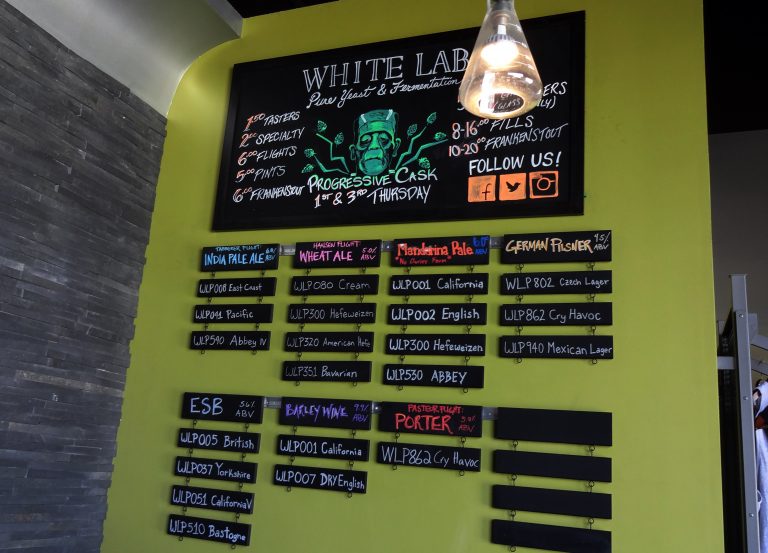 WHITE LAB
Pure Yeast & Fermentation
1.50 TASTERS
2.00 SPECIALTY
6.00 FLIGHTS
5.00 PINTS
6.00 FRANKENSTOUT
PROGRESSIVE CASK
1ST & 3RD THURSDAY
8-16.00 FILLS
10-20.00 FRANKENSTOUT
FOLLOW US!
f
INDIA PALE ALE ABV
WLP008 East Coast
WLP041 Pacific
WLP540 Abbey IV
HANSEN FLIGHT:
WHEAT ALE 5.0% ABV
WLP080 Cream
WLP300 Hefeweizen
WLP320 American Hefe
WLP351 Bavarian
Mandarina Pale 6.0% ABV
WLP001 California
WLP002 English
WLP300 Hefeweizen
WLP530 ABBEY
GERMAN PILSNER 4.5% ABV
WLP802 Czech Lager
WLP862 Cry Havoc
WLP940 Mexican Lager
ESB 5.6% ABV
WLP005 British
WLP037 Yorkshire
WLP051 California V
WLP510 Bastogne
BARLEY WINE 9.9% ABV
WLP001 California
WLP007 DRY English
PASTEUR FLIGHT:
PORTER ABV
WLP862 Cry Havoc